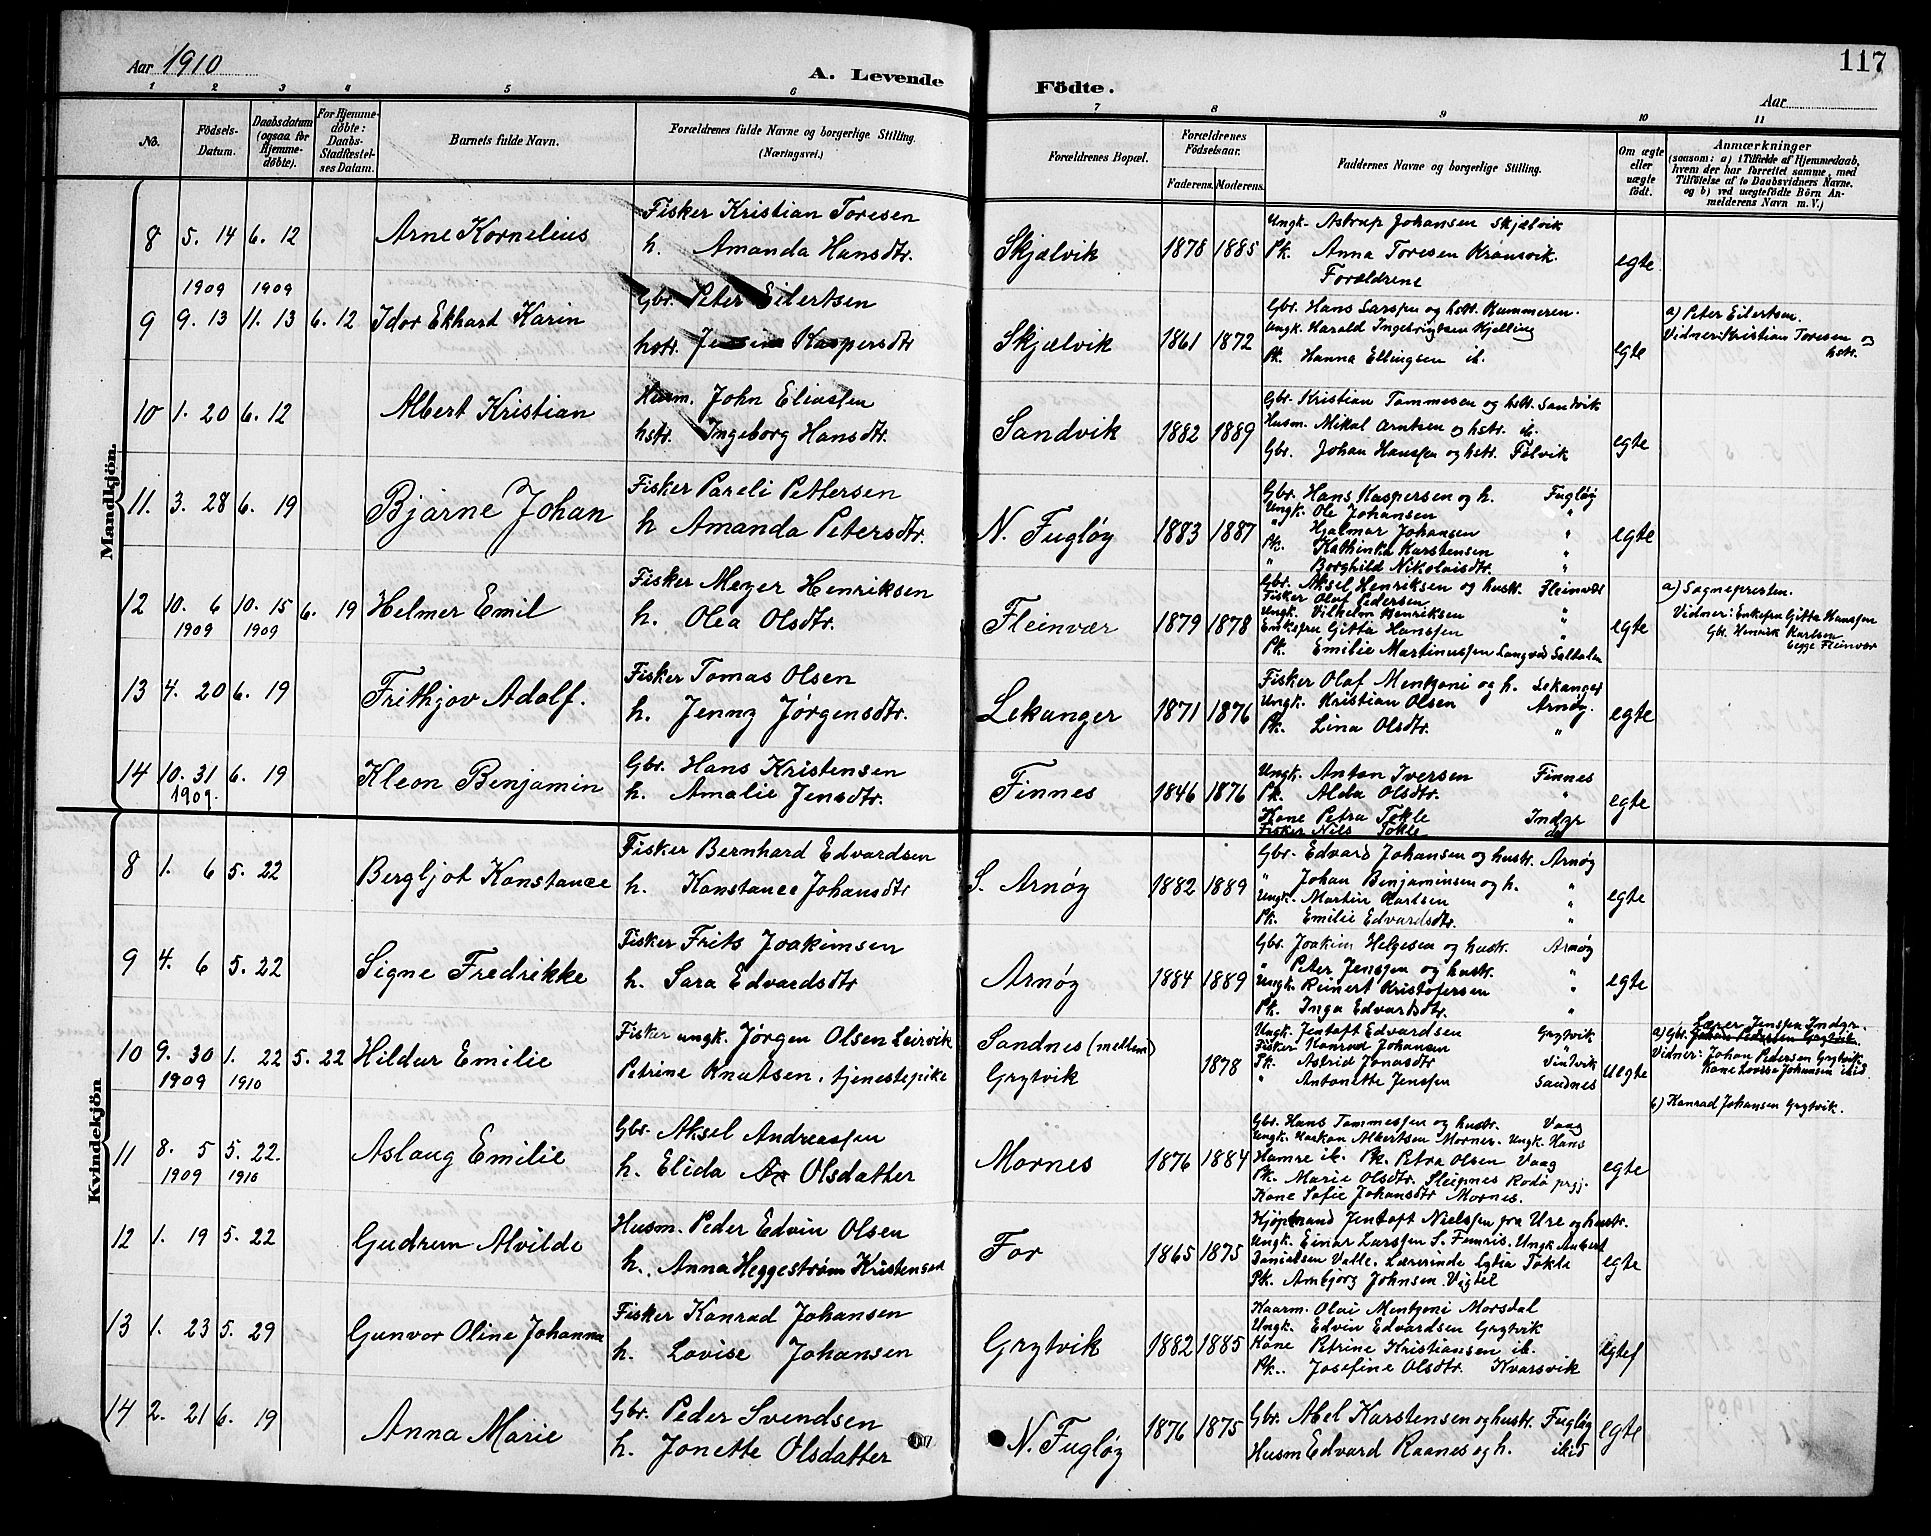 Aar 1910
A. Levende Födte.
117
Aar
1 2 3 4 5 6 7 8 9 10 11
No.
Födsels-Datum.
Daabsdatum (ogsaa for Hjemmedöbte).
For Hjemmedöbte: Daabs-Stadfestelses Datum.
Barnets fulde Navn.
Forældrenes fulde Navne og borgerlige Stilling. (Næringsvei.)
Forældrenes Bopæl.
Forældrenes Födselsaar.
Faderens. Moderens.
Faddernes Navne og borgerlige Stilling.
Om ægte eller uægte födt.
Anmærkninger
(saasom: a) i Tilfælde af Hjemmedaab, hvem der har forrettet samme, med Tilföielse af to Daabsvidners Navne. og b) ved uægtefödte Börn Anmelderens Navn m. V.)
Mandkjön.
8 5. 14 6. 12 Arne Kornelius
Fisker Kristian Toresen
h. Amanda Hansdtr.
Skjælvik 1878 1885
Ungk. Astrup Johansen Skjælvik
Pk. Anna Toresen Kransvik.
Forældrene
egte
1909 1909
9 9. 13 11. 13 6. 12 Idor Ekhart Karin
Gbr. Peter Eilertsen
hstr. Jensine Kaspersdtr
Skjælvik 1861 1872
Gbr. Hans Larssen og hstr. Kummeren.
Ungk. Harald Ingebrigtsen Kjelling
Pk. Hanna Ellingsen ib.
egte
a) Peter Eilertsen.
Vidner: Kristian Toresen og hstr.
10 1. 20 6. 12 Albert Kristian
Husm. John Eliassen
hstr. Ingeborg Hansdtr.
Sandvik 1882 1889
Gbr. Kristian Tommesen og hstr. Sandvik
Husm. Mikal Arntsen og hstr. ib.
Gbr. Johan Hanssen og hstr. Følvik
egte
11. 3. 28 6. 19 Bjarne Johan
Fisker Pareli Pettersen
h Amanda Petersdtr.
N. Fugløy 1883 1887
Gbr. Hans Kaspersen og h. Fugløy
Ungk. Ole Johansen "
" Hjalmar Johansen "
Pk. Kathinka Karstensen "
" Borghild Nikolaisdtr. "
egte
12 10. 6 10. 15 6. 19 Helmer Emil
1909 1909
Fisker Meyer Henriksen
h. Olea Olsdtr.
Fleinvær 1879 1878
Gbr. Aksel Henriksen og hustr. Fleinvær
Fisker Olaf Pedersen "
Ungk. Vilhelm Henriksen "
Enkefru Gitta Hanssen "
Pk. Emilie Martinussen Langvad Saltdalen
egte
a) Sognepresten.
Vidner: Enkefru Gitta Hanssen
Gbr. Henrik Karlsen
begge Fleinvær
13 4. 20 6. 19 Frithjov Adolf.
Fisker Tomas Olsen
h. Jenny Jørgensdtr.
Lekanger 1871 1876
Fisker Olaf Mentzoni og h. Lekanger
Ungk. Kristian Olsen Arnøy.
Pk. Lina Olsdtr. "
egte
14 10. 31 6. 19 Kleon Benjamin
1909.
Gbr. Hans Kristensen
h. Amalie Jensdtr.
Finnes 1846 1876
Ungk. Anton Iversen Finnes
Pk. Alda Olsdtr. "
Kone Petra Tokle Indyr
Fisker Nils Tokle do
egte
Kvindekjön
8 1. 6 5. 22 Bergljot Konstance
Fisker Bernhard Edvardsen
h. Konstance Johansdtr
S. Arnøy 1882 1889
Gbr. Edvard Johansen og hustr. Arnøy
" Johan Benjaminsen og h. "
Ungk. Martin Karlsen "
Pk. Emilie Edvardsdtr. "
egte
9 4. 6 5. 22 Signe Fredrikke
Fisker Frits Joakimsen
h. Sara Edvardsdtr
Arnøy 1884 1889
Gbr. Joakim Helgesen og hustr. Arnøy
" Peter Jenssen og hustr. "
Ungk. Reinert Kristofersen "
Pk. Inga Edvardsdtr. "
egte
10 9. 30 1. 22 5. 22 Hildur Emilie
1909 1910
Fisker ungk. Jørgen Olsen Leirvik
Petrine Knutsen, tjenestepike
Sandnes (mellem)
Grytvik 1878
Ungk. Jentoft Edvardsen Grytvik
Fisker Konrad Johansen "
Pk. Astrid Jonasdtr Vindvik
" Antonette Jenssen Sandnes
uegte
Lærer Jenssen Indyr.
a) Gbr. Johan Pedersen Grytvik
Vidner: Johan Pedersen Grytvik
Kone Lovise Johansen ibid
b) Konrad Johansen Grytvik.
11 8. 5 5. 22. Aslaug Emilie
1909 1910
Gbr. Aksel Andreassen
h. Elida Olsdatter
Mornes 1876 1884
Gbr. Hans Tommessen og hustr. Vaag
Ungk. Haakon Albertsen Mornes. Ungk. Hans
Hamre ib. Pk. Petra Olsen Vaag
Pk. Marie Olsdtr. Sleipnes Rodø prgj.
Kone Sofie Johansdtr Mornes.
egte
12 1. 19 5. 22 Gudrun Alvilde
Husm. Peder Edvin Olsen
h. Anna Heggestrøm Kristensen
For 1865 1875
Kjøpmand Jentoft Nielssen fra Ure og hustr.
Ungk. Einar Larssen S. Fumris. Ungk. Anbert
Danielsen Valle. Lærerinde Lydia Tokle
Pk. Arnbjørg Johnsen Vigtel
egte
13 1. 23 5. 29 Gunvor Oline Johanna
Fisker Konrad Johansen
h. Lovise Johansen
Grytvik 1882 1885
Kaarm. Olai Mentzoni Morsdal
Ungk. Edvin Edvardsen Grytvik
Kone Petrine Kristiansen ib.
Pk. Josefine Olsdtr. Kvarsvik
egte
14 2. 21 6. 19 Anna Marie
Gbr. Peder Svendsen
h. Jonette Olsdatter
N. Fugløy 1876 1875
Gbr. Abel Karstensen og hustr. Fugløy
Husm Edvard Raanes og h. ibid
egte
117